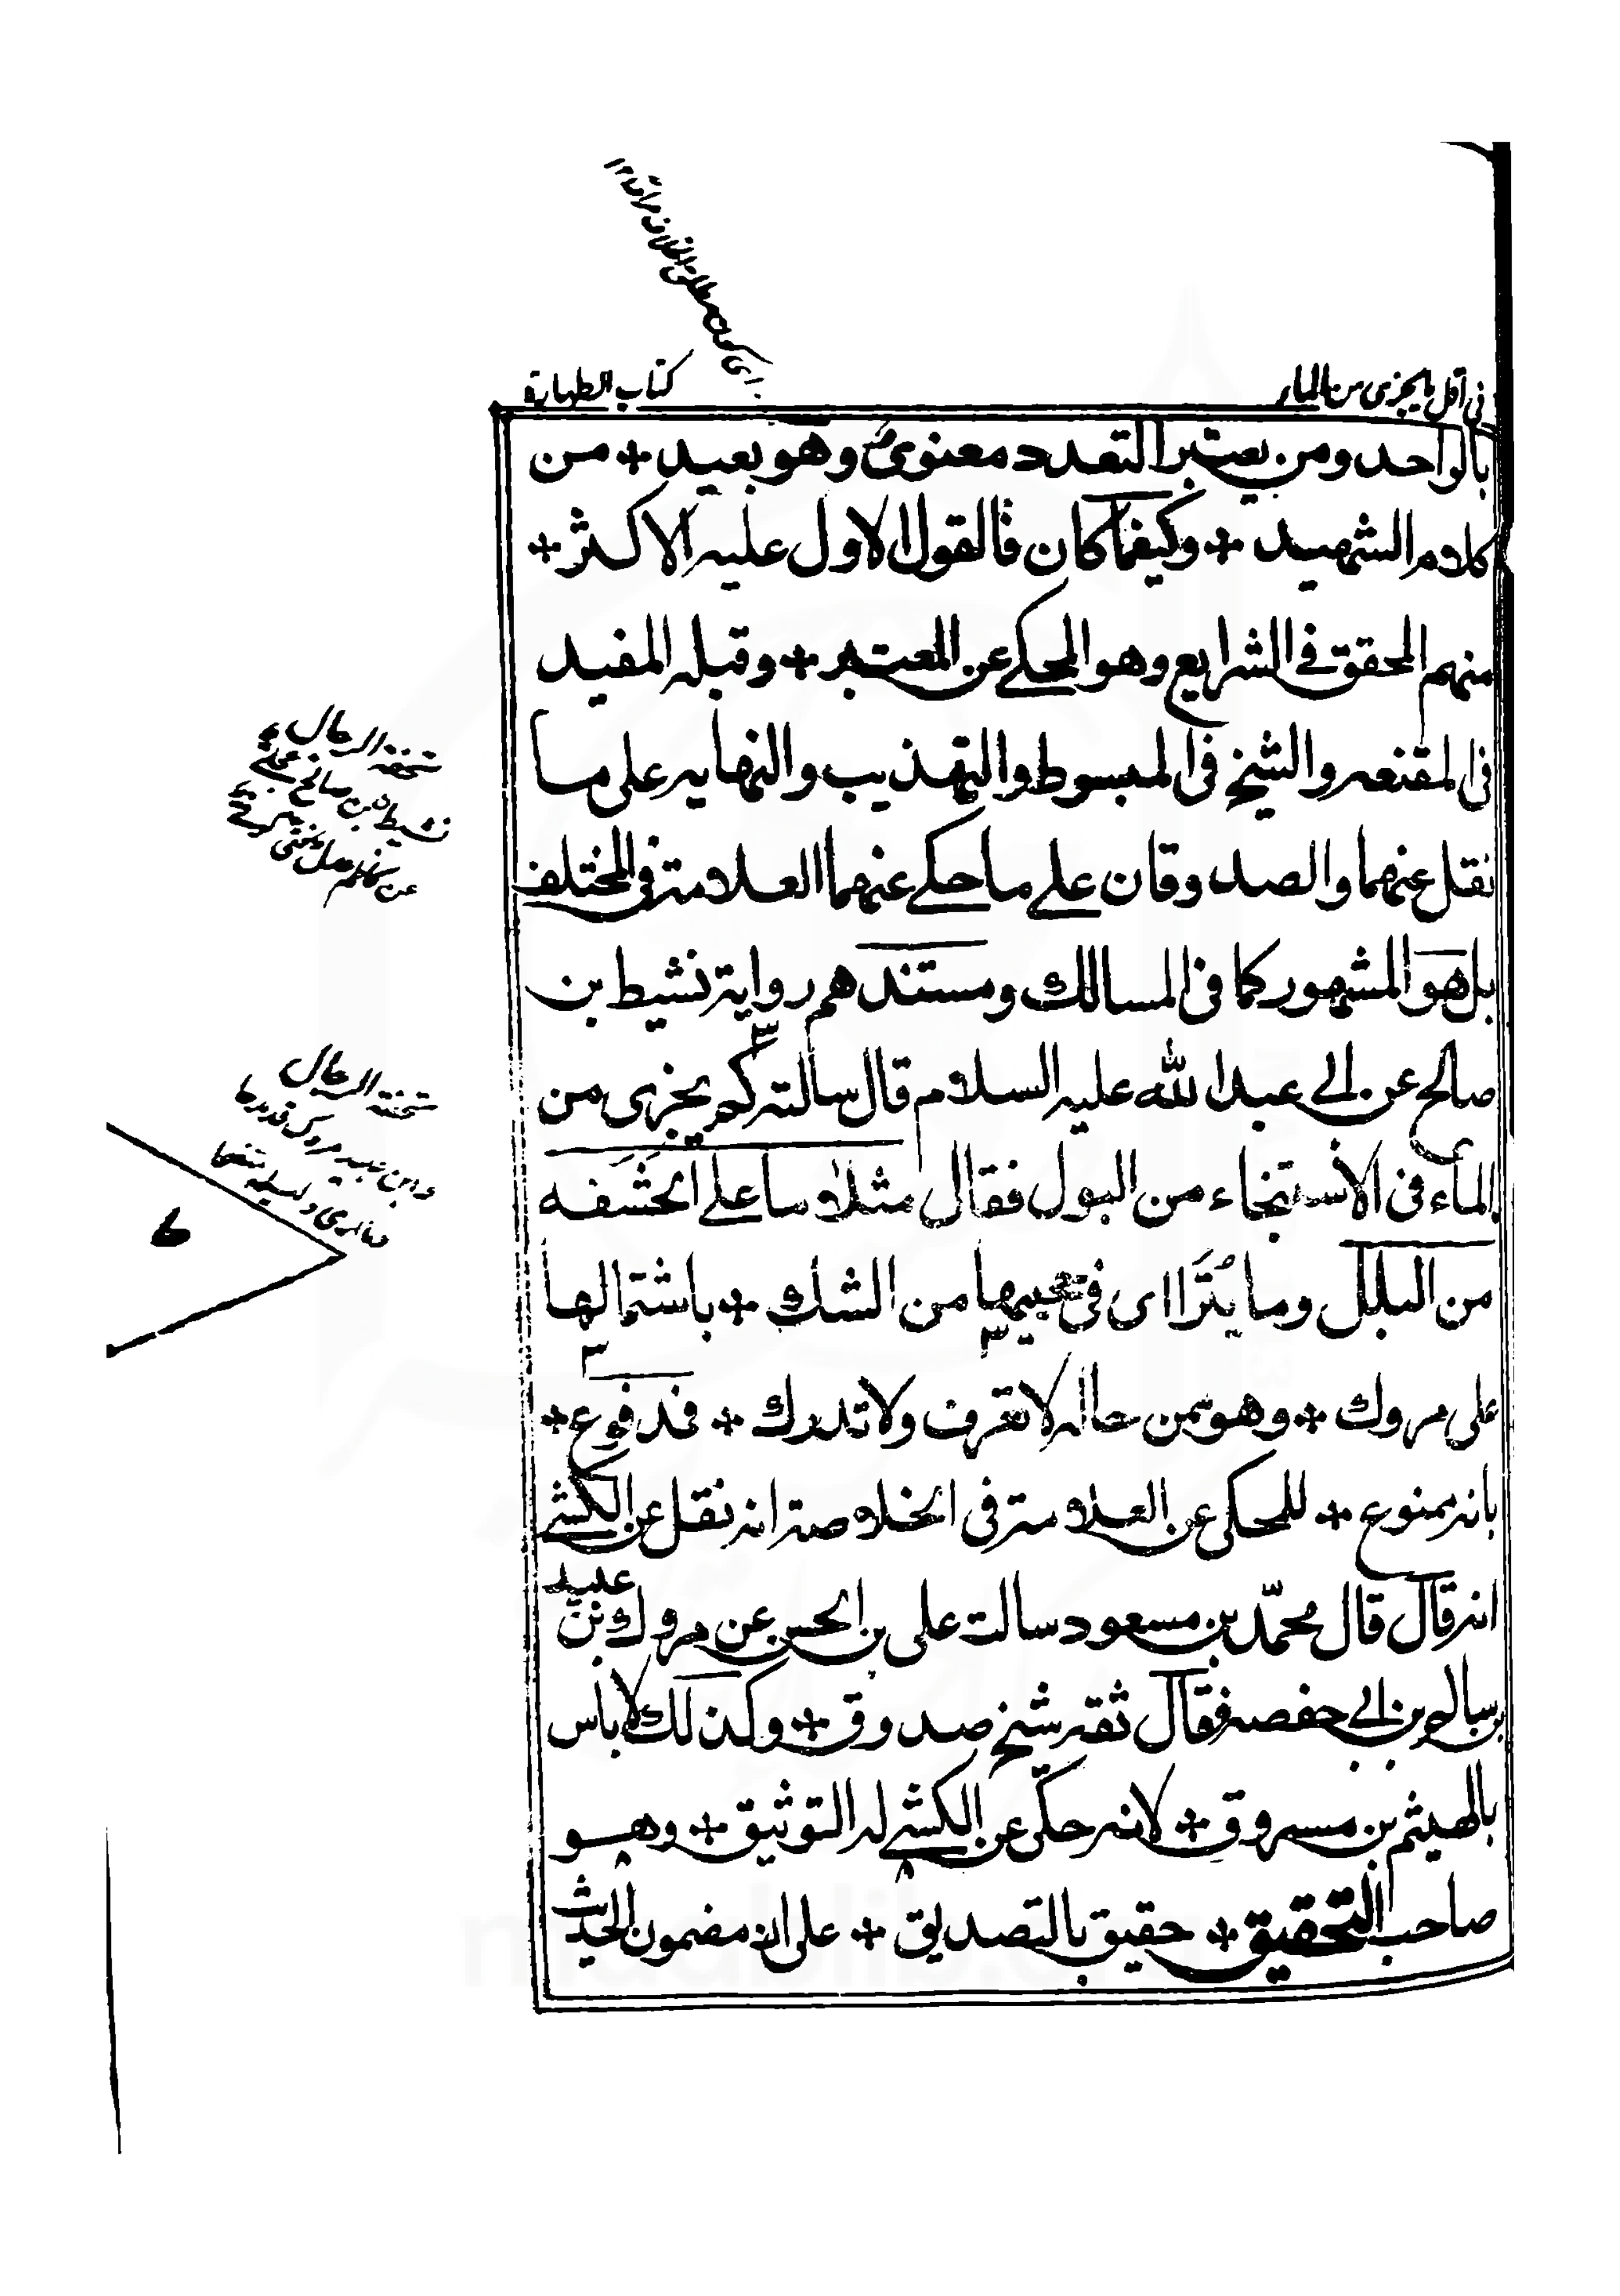 في اقل ما يجزى من الماء
كتاب الطهارة
بالواحد ومن يعتبر التعدد معنوىٌ وهو بعيد * من
كلام الشهيد * وكيفما كان فالقول الاول عليه الاكثر *
منهم المحقق في الشرايع وهو المحكي عن المعتبر * وقبله المفيد
في المقنعه والشيخ في المبسوط والتهذيب والنهايه على ما
نقل عنهما والصدوقان علي ما حكي عنهما العلامة في المختلف
بل هو المشهور كما في المسالك ومستندهم رواية نشيط بن
صالح عن ابي عبد الله عليه السلام قال سالته كم يجزى من
الماء في الأستنجاء من البول فقال مثلا ما علي الحَشَفه
من البلل وما يُترَااى في نجيبها من الشك * باشتمالها
على مروك * وهو ممن حاله لا تعرف ولا تدرك * فمدفوع *
بانه ممنوع * للمحكى عن العلامة في الخلاصة انه نقل عن الكشي
انه قال قال محمّد بن مسعود سالت على بن الحسن عن مروك بن عبيد
بن سالم بن ابي حفصه فقال ثقه شيخ صدوق * وكذلك لا باس
بالهيثم بن مسروق * لانه حكى عن الكشي له التوثيق * وهو
صاحب التحقيق * حقيق بالتصديق * على ان مضمون الحديث
تحفة الرجال
نشيط بن صالح
عن كاظم
تحفة الرجال
٤